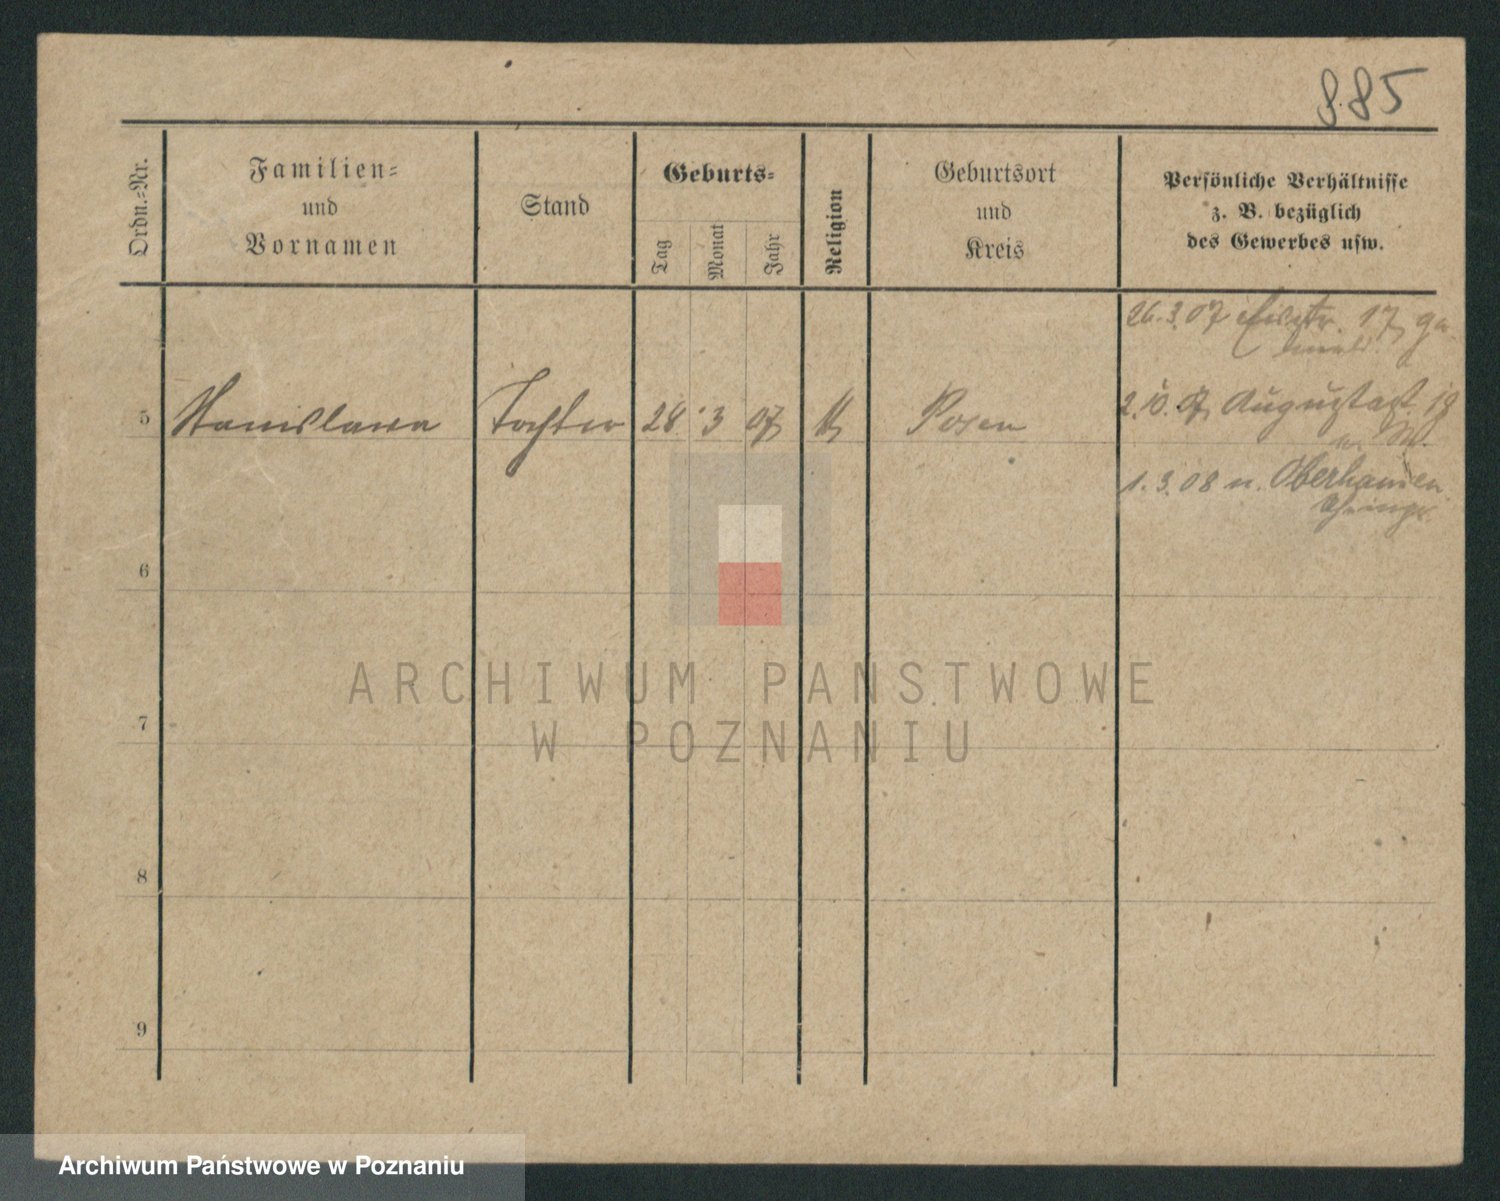 885
Ordn.=Nr.
Familien=
und
Vornamen
Stand
Geburts=
Tag
Monat
Jahr
Religion
Geburtsort
und
Kreis
Persönliche Verhältnisse
z. B. bezüglich
des Gewerbes usw.
26.3.07 17
5 Stanislawa Tochter 28 3 07 k Posen
2.10.07 Augustast. 19
1.3.08 n. Oberhausen
6
7
8
9
ARCHIWUM PAŃSTWOWE
W POZNANIU
Archiwum Państwowe w Poznaniu